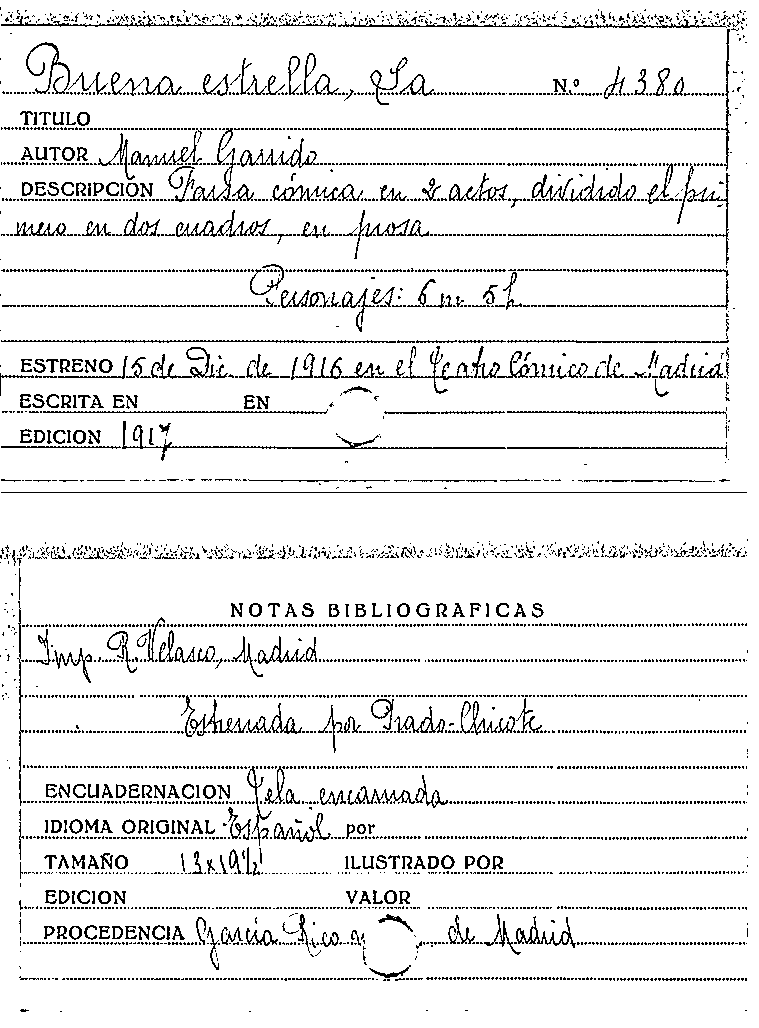 Buena estrella, La Nº 4380
TITULO
AUTOR Manuel Garrido
DESCRIPCIÓN Farsa cómica en 2 actos, dividido el pri-
mero en dos cuadros, en prosa
Personajes: 6 m 5 h
ESTRENO 15 de Dic. de 1916 en el Teatro Cómico de Madrid
ESCRITA EN EN
EDICION 1917
NOTAS BIBLIOGRAFICAS
Imp. R. Velasco, Madrid
Estrenada por Prado-Chicote
ENCUADERNACION Tela encarnada
IDIOMA ORIGINAL Español por
TAMAÑO 13x19½ ILUSTRADO POR
EDICION VALOR
PROCEDENCIA García Rico y de Madrid